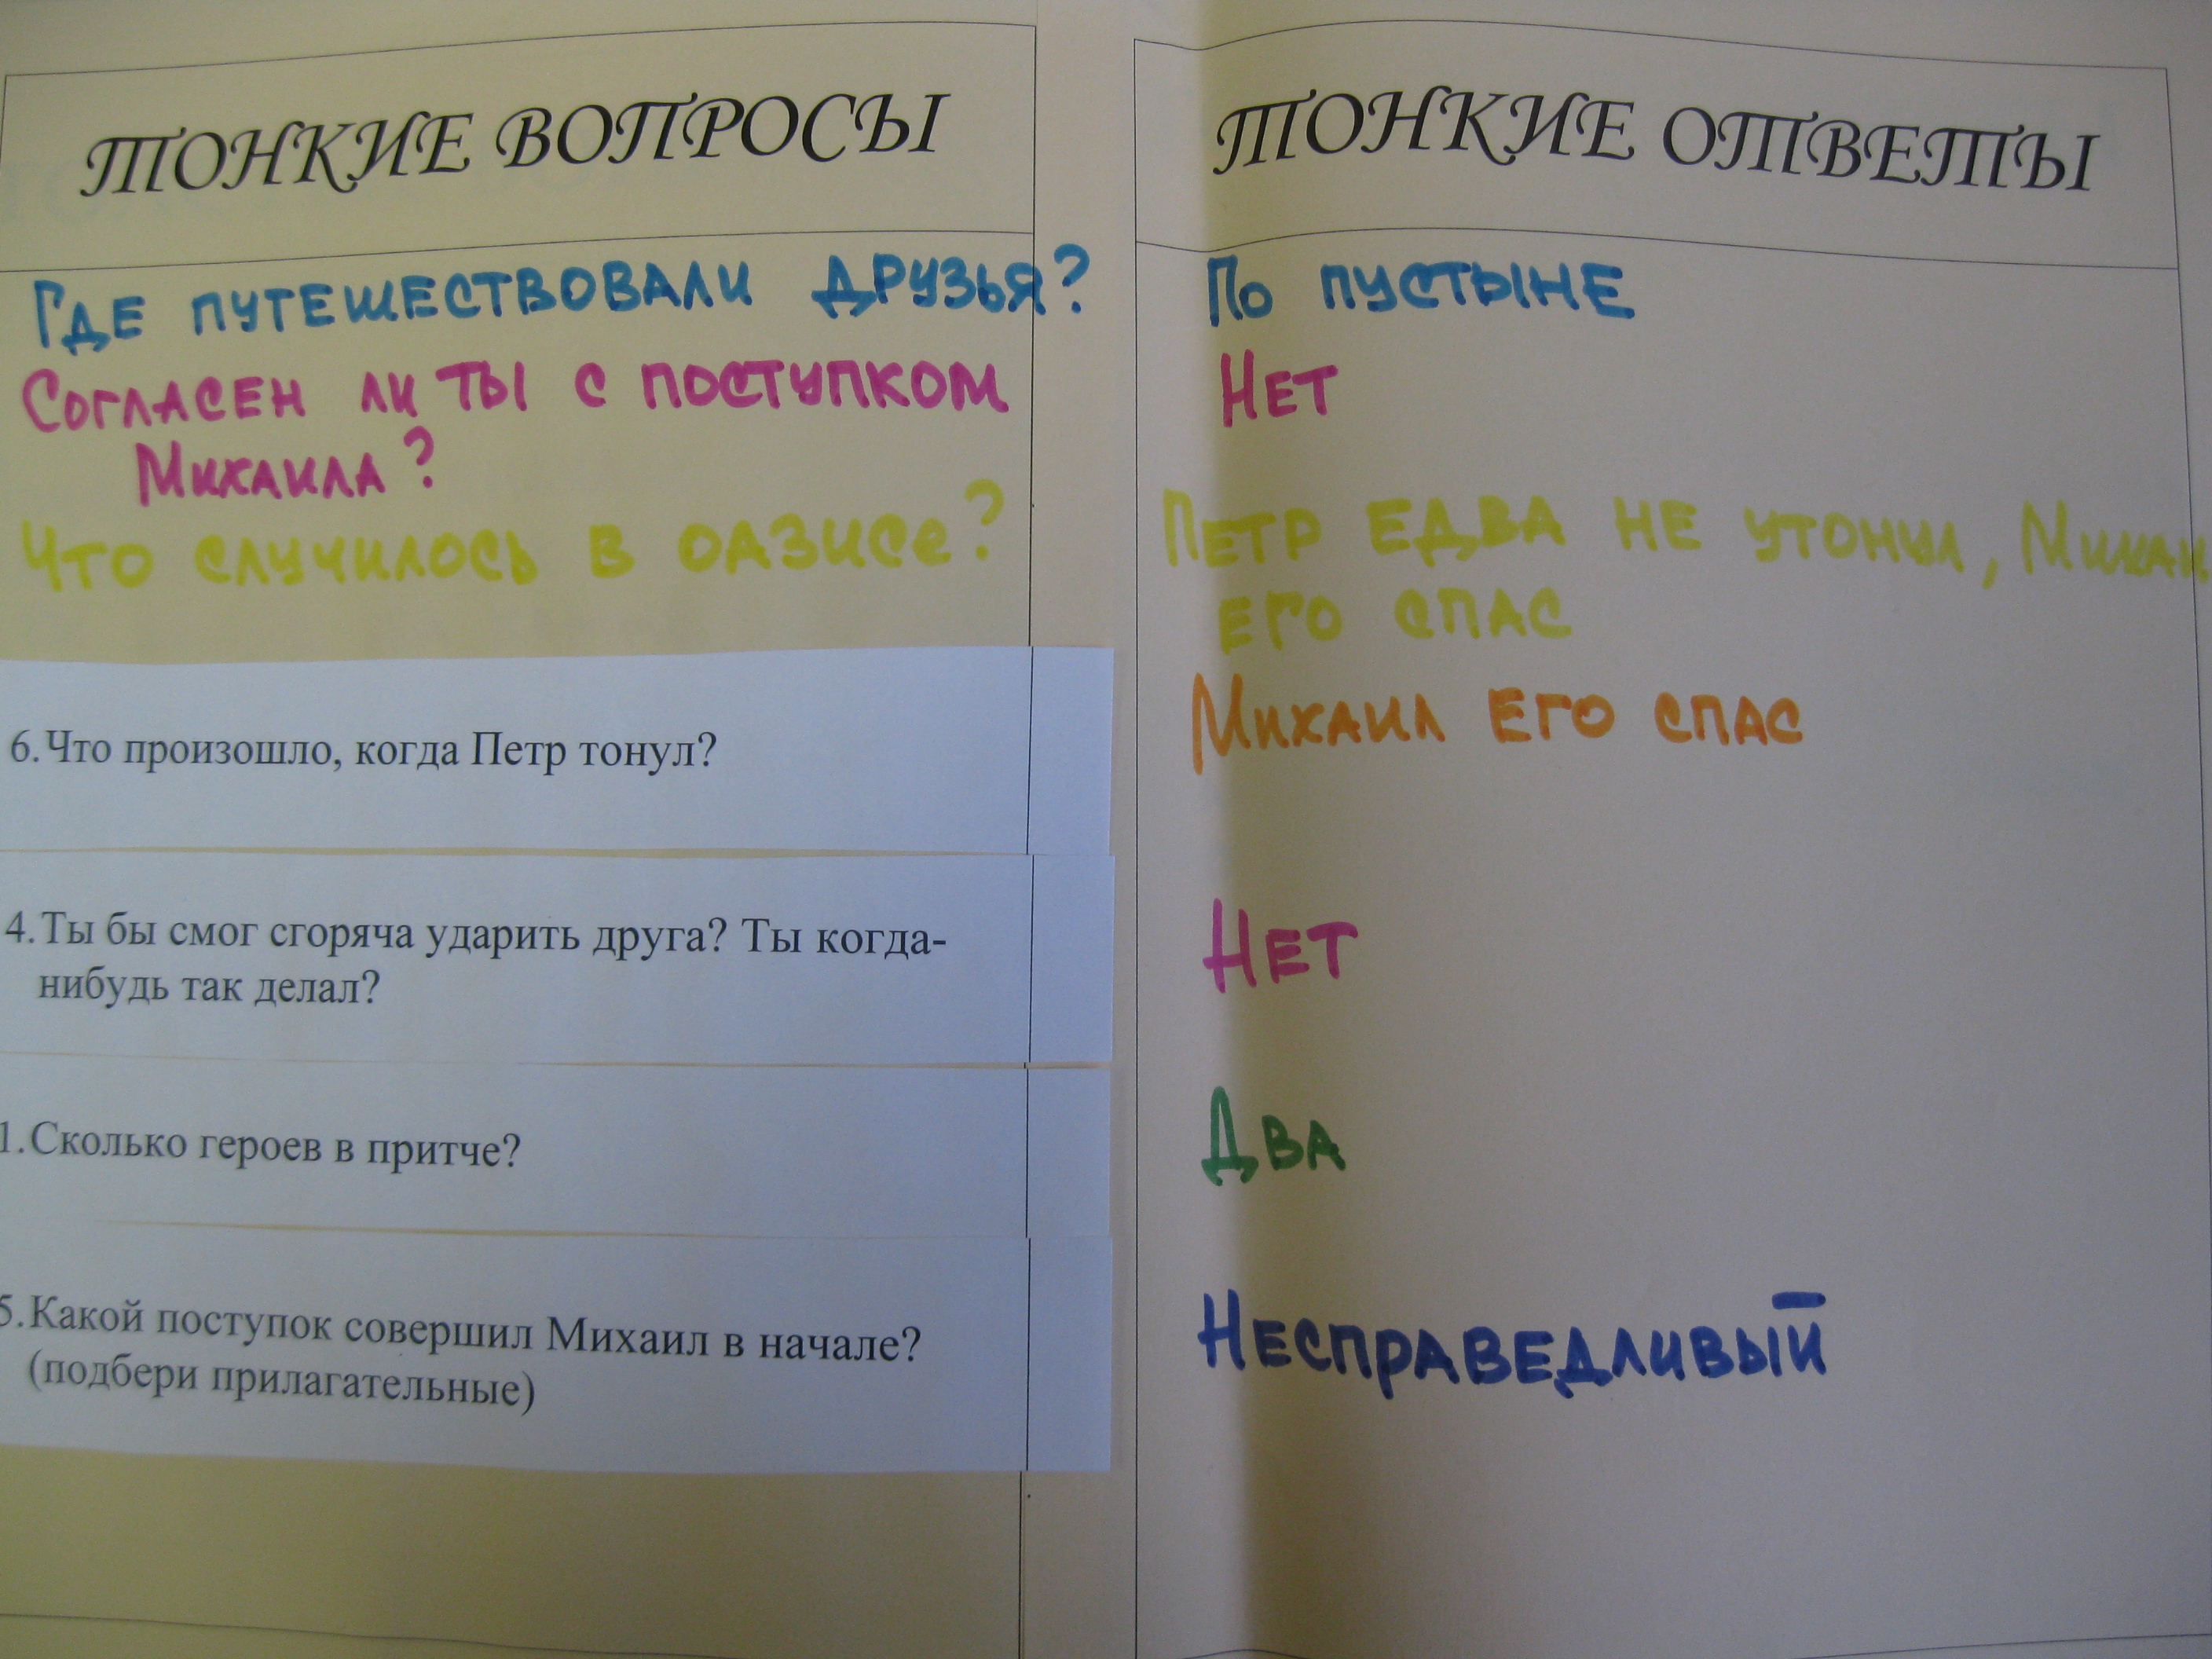 ТОНКИЕ ВОПРОСЫ
Где путешествовали друзья?
Согласен ли ты с поступком
Михаила?
Что случилось в оазисе?
6.Что произошло, когда Петр тонул?
4.Ты бы смог сгоряча ударить друга? Ты когда-
нибудь так делал?
1.Сколько героев в притче?
5.Какой поступок совершил Михаил в начале?
(подбери прилагательные)
ТОНКИЕ ОТВЕТЫ
По пустыне
Нет
Петр едва не утонул, Михаи
его спас
Михаил его спас
Нет
Два
Несправедливый